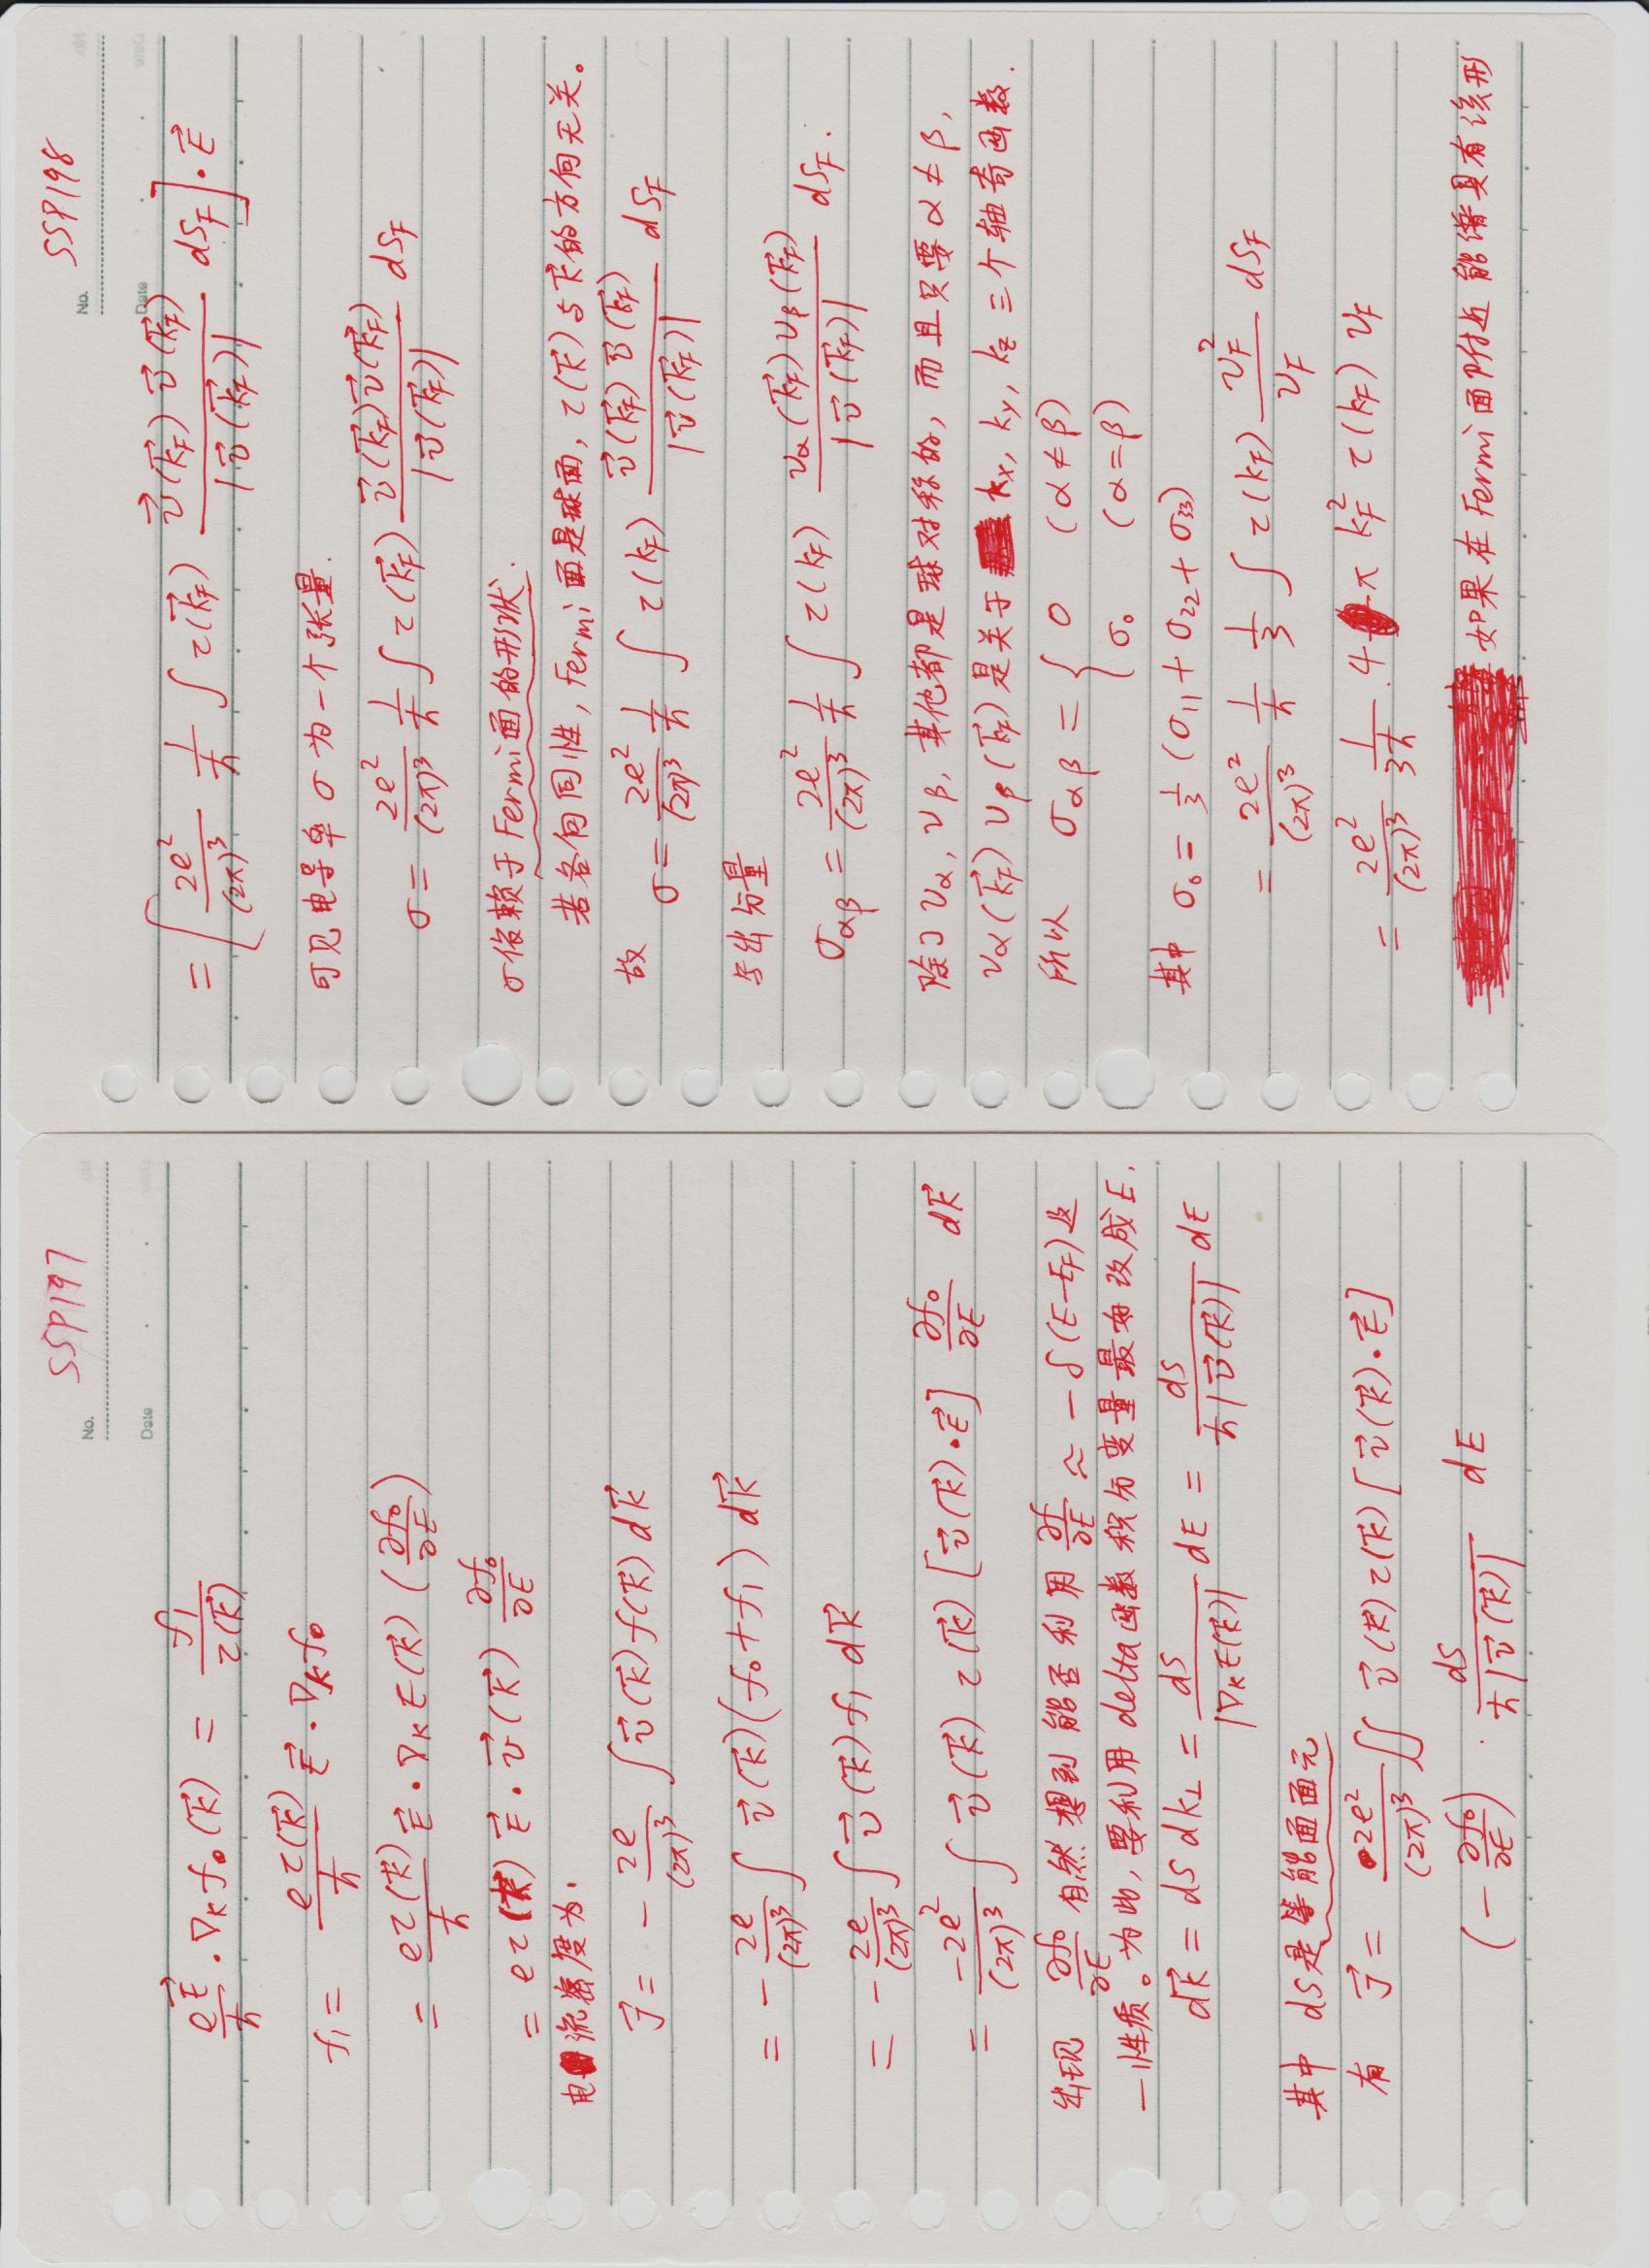 SSP197
No.
Date
$\frac{e\vec{E}}{\hbar} \cdot \nabla_k f_0(\vec{k}) = \frac{f_1}{\tau(\vec{k})}$
$f_1 = \frac{e\tau(\vec{k})}{\hbar} \vec{E} \cdot \nabla_k f_0$
$= \frac{e\tau(\vec{k})}{\hbar} \vec{E} \cdot \nabla_k E(\vec{k}) \left(\frac{\partial f_0}{\partial E}\right)$
$= e\tau(\vec{k}) \vec{E} \cdot \vec{v}(\vec{k}) \frac{\partial f_0}{\partial E}$
电流密度为.
$\vec{J} = -\frac{2e}{(2\pi)^3} \int \vec{v}(\vec{k}) f(\vec{k}) d\vec{k}$
$= -\frac{2e}{(2\pi)^3} \int \vec{v}(\vec{k}) (f_0+f_1) d\vec{k}$
$= -\frac{2e}{(2\pi)^3} \int \vec{v}(\vec{k}) f_1 d\vec{k}$
$= \frac{-2e^2}{(2\pi)^3} \int \vec{v}(\vec{k}) \tau(\vec{k}) [\vec{v}(\vec{k}) \cdot \vec{E}] \frac{\partial f_0}{\partial E} d\vec{k}$
出现 $\frac{\partial f_0}{\partial E}$ 自然想到能否利用 $\frac{\partial f}{\partial E} \approx -\delta(E-E_F)$ 这
一性质。为此, 要利用delta函数积分变量最好改成E.
$d\vec{k} = dS\,dk_\perp = \frac{dS}{|\nabla_k E(\vec{k})|} dE = \frac{dS}{\hbar|\vec{v}(\vec{k})|} dE$
其中 dS是等能面面元
有 $\vec{J} = \frac{2e^2}{(2\pi)^3} \iint \vec{v}(\vec{k}) \tau(\vec{k}) [\vec{v}(\vec{k}) \cdot \vec{E}]$
$\left(-\frac{\partial f_0}{\partial E}\right) \cdot \frac{dS}{\hbar|\vec{v}(\vec{k})|} dE$
SSP198
No.
Date
$= \left[\frac{2e^2}{(2\pi)^3} \frac{1}{\hbar} \int \tau(\vec{k_F}) \frac{\vec{v}(\vec{k_F})\vec{v}(\vec{k_F})}{|\vec{v}(\vec{k_F})|} dS_F\right] \cdot \vec{E}$
可见电导率σ为一个张量.
$\sigma = \frac{2e^2}{(2\pi)^3} \frac{1}{\hbar} \int \tau(\vec{k_F}) \frac{\vec{v}(\vec{k_F})\vec{v}(\vec{k_F})}{|\vec{v}(\vec{k_F})|} dS_F$
σ依赖于Fermi面的形状.
若各向同性, Fermi面是球面, $\tau(\vec{k})$与$\vec{k}$的方向无关。
故 $\sigma = \frac{2e^2}{(2\pi)^3} \frac{1}{\hbar} \int \tau(k_F) \frac{\vec{v}(\vec{k_F})\vec{v}(\vec{k_F})}{|\vec{v}(\vec{k_F})|} dS_F$
写出分量
$\sigma_{\alpha\beta} = \frac{2e^2}{(2\pi)^3} \frac{1}{\hbar} \int \tau(k_F) \frac{v_\alpha(\vec{k_F}) v_\beta(\vec{k_F})}{|\vec{v}(\vec{k_F})|} dS_F.$
除了$v_\alpha, v_\beta$, 其他都是球对称的, 而且只要$\alpha \neq \beta$,
$v_\alpha(\vec{k_F}) v_\beta(\vec{k_F})$是关于 $k_x, k_y, k_z$ 三个轴奇函数.
所以 $\sigma_{\alpha\beta} = \begin{cases} 0 & (\alpha \neq \beta) \\ \sigma_0 & (\alpha = \beta) \end{cases}$
其中 $\sigma_0 = \frac{1}{3}(\sigma_{11} + \sigma_{22} + \sigma_{33})$
$= \frac{2e^2}{(2\pi)^3} \frac{1}{\hbar} \frac{1}{3} \int \tau(k_F) \frac{v_F^2}{v_F} dS_F$
$= \frac{2e^2}{(2\pi)^3} \frac{1}{3\hbar} \cdot 4\pi k_F^2 \tau(k_F) v_F$
如果在Fermi面附近能谱具有该形